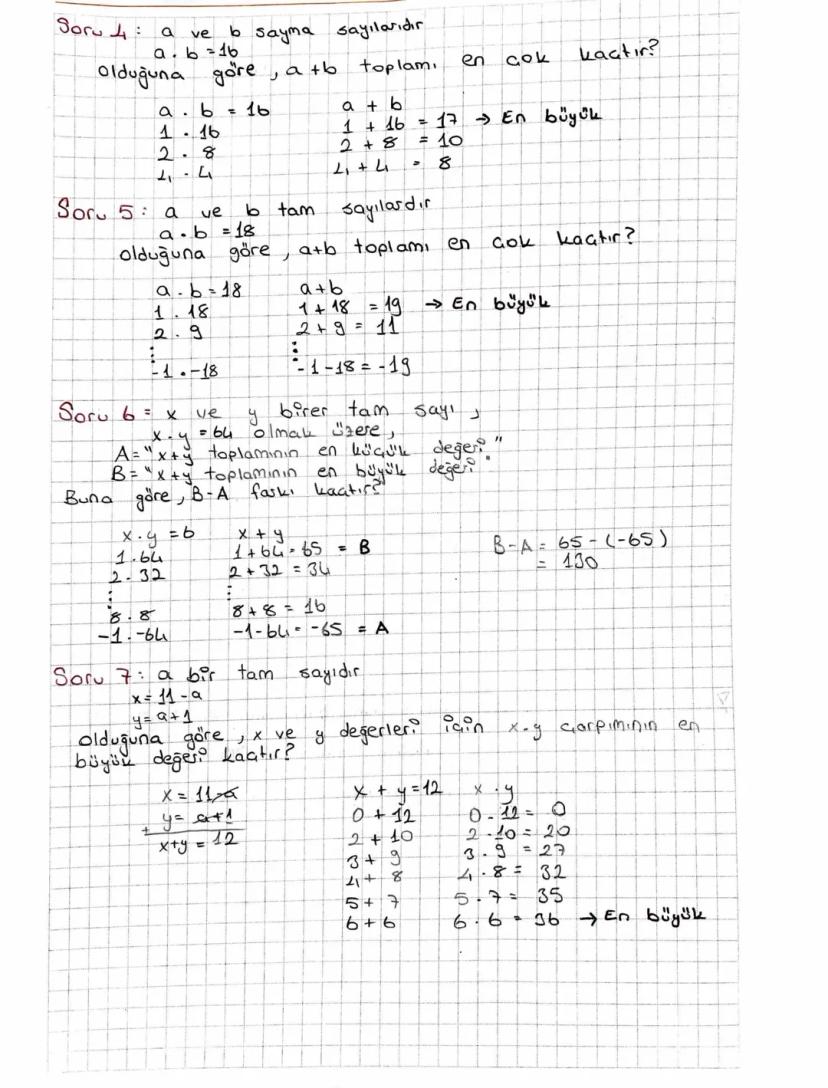 Soru 4: a ve b sayma sayılarıdır
a . b = 16
olduğuna göre, a+b toplamı en çok kaçtır?
a . b = 16    a + b
1 . 16    1 + 16 = 17 → En büyük
2 . 8    2 + 8 = 10
4 . 4    4 + 4 = 8
Soru 5: a ve b tam sayılardır
a . b = 18
olduğuna göre, a+b toplamı en çok kaçtır?
a . b = 18    a+b
1 . 18    1 + 18 = 19 → En büyük
2 . 9    2 + 9 = 11
⋮    ⋮
-1 . -18    -1 -18 = -19
Soru 6 = x ve y birer tam sayı,
x . y = 64 olmak üzere,
A = "x+y toplamının en küçük değeri"
B = "x+y toplamının en büyük değeri"
Buna göre, B-A farkı kaçtır?
x . y = 6    x + y
1 . 64    1 + 64 = 65 = B    B-A = 65 - (-65)
2 . 32    2 + 32 = 34    = 130
⋮    ⋮
8 . 8    8 + 8 = 16
-1 . -64    -1 - 64 = -65 = A
Soru 7: a bir tam sayıdır
x = 11 - a
y = a + 1
olduğuna göre, x ve y değerleri için x.y çarpımının en
büyük değeri kaçtır?
x = 11 - a    x + y = 12    x . y
y = a + 1    0 + 12    0 . 12 = 0
+    2 + 10    2 . 10 = 20
x+y = 12    3 + 9    3 . 9 = 27
4 + 8    4 . 8 = 32
5 + 7    5 . 7 = 35
6 + 6    6 . 6 = 36 → En büyük